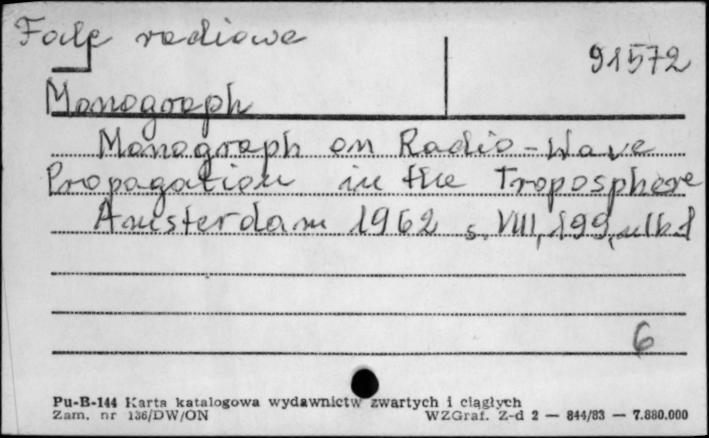 Fale radiowe
91572
Monograph
Monograph on Radio-Wave
Propagation in the Troposphere
Amsterdam 1962 s. VIII, 199,
6
Pu-B-144 Karta katalogowa wydawnictw zwartych i ciągłych
Zam. nr 136/DW/ON WZGraf. Z-d 2 — 844/83 — 7.880.000